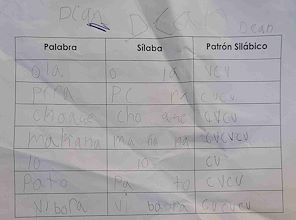 Dean Dean Dean
Palabra Sílaba Patrón Silábico
ola o la VCV
pera pe ra CVCV
cho CVCV
mañana ma ña na CVCVCV
lo lo CV
Pato Pa to CVCV
Vibora Vi bora CVCVCV